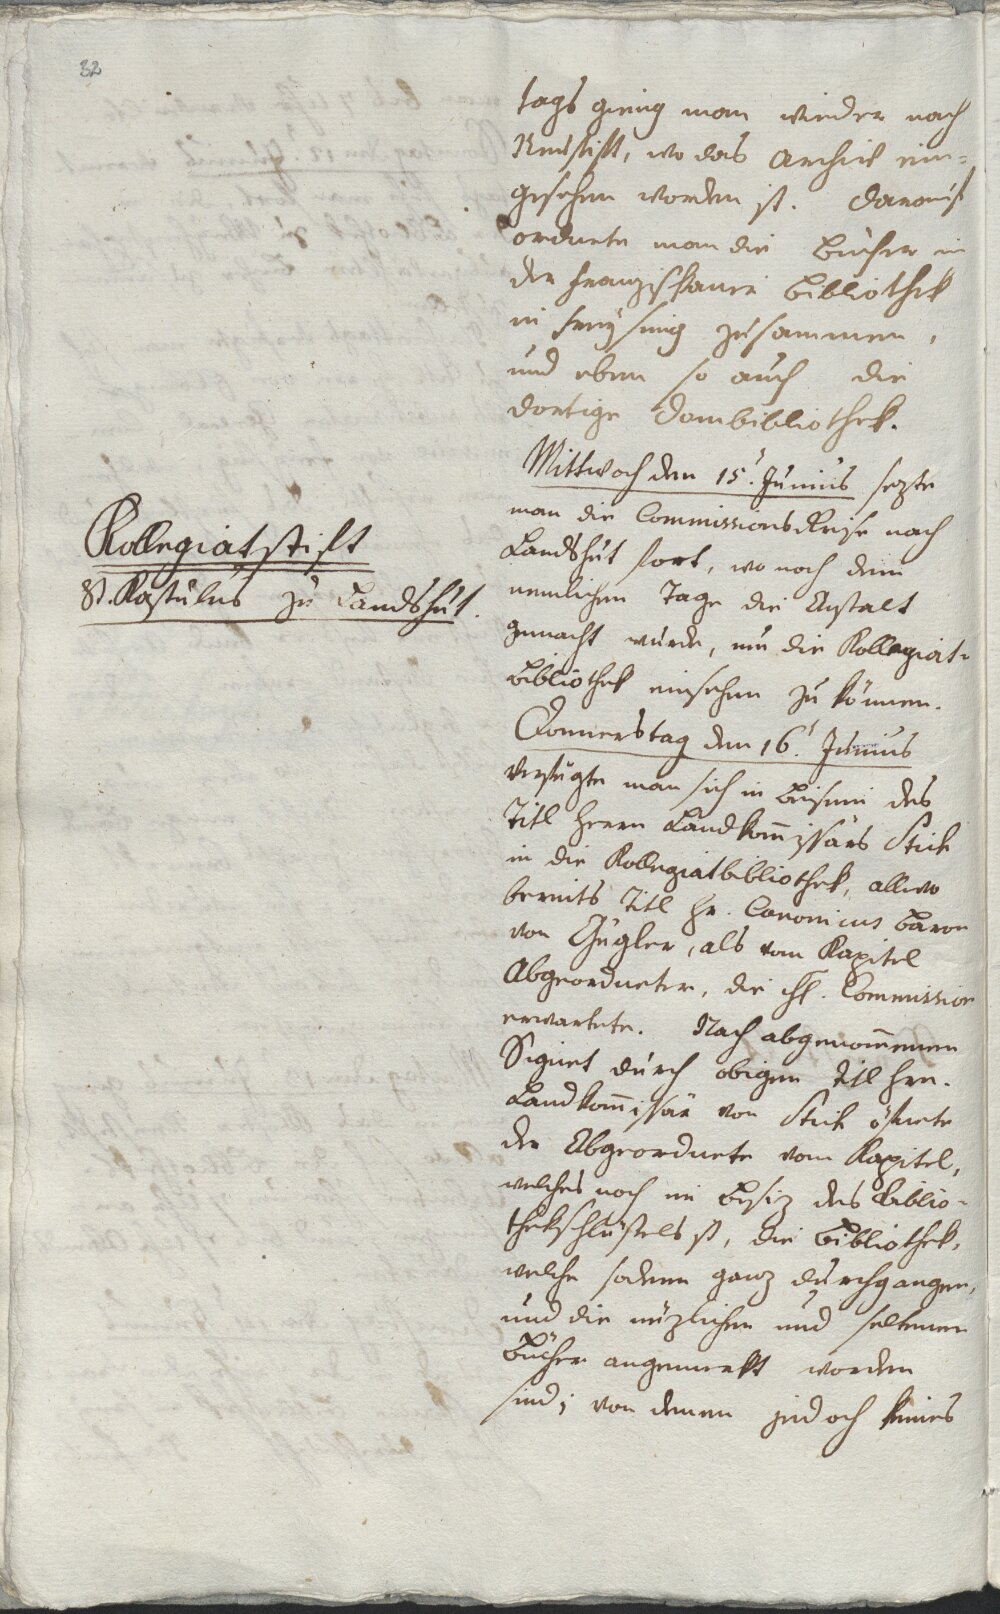 32
tags gieng man wieder nach
Neustift, wo das Archiv ein-
gesehen worden ist. Darauf
ordnete man die Bücher in
der Franziskaner Bibliothek
in Freysing zusammen,
und eben so auch die
dortige Dombibliothek.
Mittwoch den 15t. Junius sezte
man die Commissions Reise nach
Landshut fort, wo noch dem
nemlichen Tage die Anstalt
gemacht wurde, um die Kollegiat-
Bibliothek einsehen zu können.
Kollegiatstift
St. Kastulus zu Landshut.
Donnerstag den 16t. Junius
verfügte man sich in Beiseyn des
Titl Herrn Landkom̅issärs Stick
in die Kollegiatbibliothek, allwo
bereits Titl Hr. Canonicus Baron
von Gugler, als vom Kapitel
Abgeordneter, die Commission
erwartete. Nach abgenom̅enen
Signet durch obigen Titl Hrn.
Landkom̅issär von Stick öfnete
der Abgeordnete vom Kapitel,
welches noch im Besiz des Biblio-
thekschlüssels ist, die Bibliothek,
welche sodann ganz durchgangen,
und die nüzlichen und seltenen
Bücher angemerkt worden
sind; von denen jedoch keines